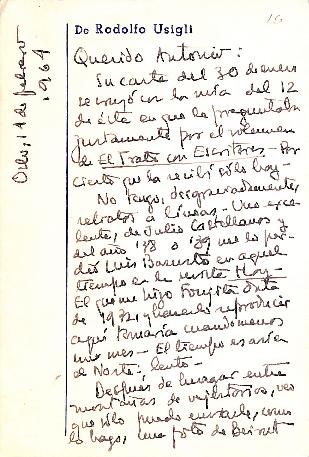 10
De Rodolfo Usigli
Oslo, 14 de febrero
1964
Querido Antonio:
Su carta del 30 de enero
se cruzó con la mía del 12
de ésta en que le preguntaba
justamente por el volumen
de El Trato con Escritores - Por
cierto que la recibí sólo hoy -
No tengo, desgraciadamente,
retratos a líneas - Uno exce-
lente, de Julio Castellanos y
del año '38 o '39 me lo per-
dió Luis Basurto en aquel
tiempo en la revista Hoy -
El que me hizo
de 1932, y hacerlo reproducir
aquí tomaría cuando menos
un mes - El tiempo es así en
el Norte: lento -
Después de hurgar entre
montañas de vejestorios, veo
que sólo puedo enviarle, como
lo hago, una foto de Beirut